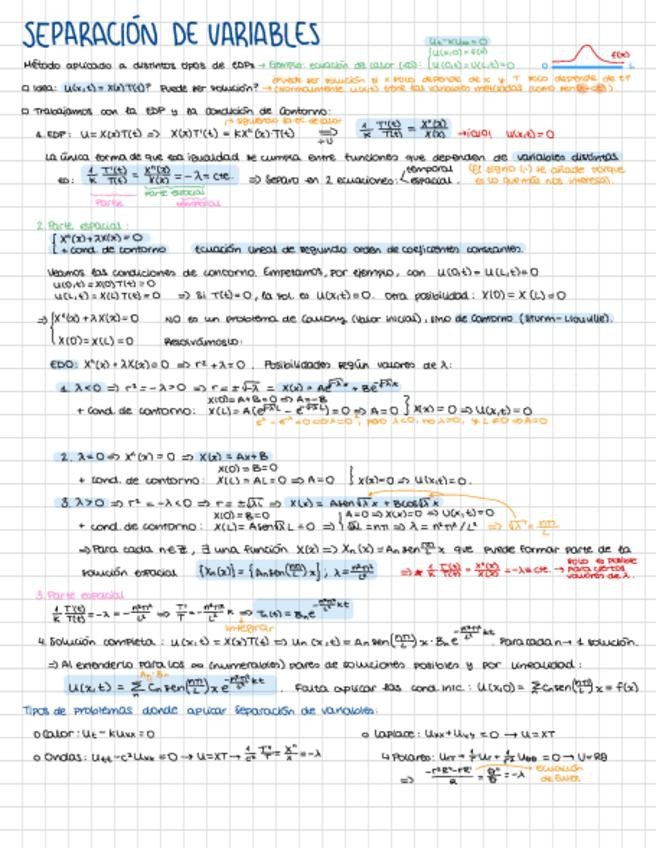 SEPARACIÓN DE VARIABLES
Ut-KUxx=0
Método aplicado a distintos tipos de EDPs → Ejemplo: ecuación del calor (1D): { U(x,0)=f(x) U(0,t)=U(L,t)=0
f(x)
0 L
□ Idea: U(x,t) = X(x)T(t)? Puede ser solución?
□ Trabajamos con la EDP y la condición de contorno:
1. EDP: U=X(x)T(t) => X(x)T'(t) = KX''(x)·T(t) => ÷U 1/K T'(t)/T(t) = X''(x)/X(x) U(x,t)=0
La única forma de que esa igualdad se cumpla entre funciones que dependen de variables distintas
es: 1/K T'(t)/T(t) = X''(x)/X(x) = -λ = cte. => Separo en 2 ecuaciones: temporal espacial. (El signo (-) se añade porque es lo que más nos interesa).
Parte espacial
Parte temporal
2. Parte espacial:
{ X''(x)+λX(x)=0
+ cond. de contorno Ecuación lineal de segundo orden de coeficientes constantes.
Veamos las condiciones de contorno. Empezamos, por ejemplo, con U(0,t)=U(L,t)=0
U(0,t)=X(0)T(t)=0
U(L,t)=X(L)T(t)=0 => Si T(t)=0, la sol. es U(x,t)=0. Otra posibilidad: X(0)=X(L)=0
=> { X''(x)+λX(x)=0 No es un problema de Cauchy (valor inicial), sino de contorno (Sturm-Liouville).
X(0)=X(L)=0 Resolvámoslo:
EDO: X''(x)+λX(x)=0 => r²+λ=0. Posibilidades según valores de λ:
1. λ<0 => r²=-λ>0 => r=±√-λ => X(x)=Ae^√-λx + Be^-√-λx
X(0)=A+B=0 => A=-B
+ cond. de contorno: X(L)=A(e^√-λL - e^-√-λL)=0 => A=0 } X(x)=0 => U(x,t)=0
2. λ=0 => X''(x)=0 => X(x)=Ax+B
X(0)=B=0
+ cond. de contorno: X(L)=AL=0 => A=0 } X(x)=0 => U(x,t)=0.
3. λ>0 => r²=-λ<0 => r=±√λi => X(x)=Asen√λx + Bcos√λx
X(0)=B=0 { A=0 => X(x)=0 => U(x,t)=0
+ cond. de contorno: X(L)=Asen√λL=0 => √λL=nπ => λ=n²π²/L² => √λ=nπ/L
=> Para cada n∈Z, ∃ una función X(x) => Xn(x)=An sen(nπ/L)x que puede formar parte de la
solución espacial {Xn(x)}={An sen(nπ/L)x}; λ=n²π²/L² => * 1/K T'(t)/T(t) = X''(x)/X(x) = -λ = cte. → solo es posible para ciertos valores de λ.
3. Parte espacial
1/K T'(t)/T(t) = -λ = -n²π²/L² => T'/T = -n²π²/L² K => Tn(t)=Bn e^-n²π²/L² kt
integrar
4. Solución completa: U(x,t)=X(x)T(t) => Un(x,t)=An sen(nπ/L)x·Bn e^-n²π²/L² kt. Para cada n → 1 solución.
=> Al extenderlo para los ∞ (numerables) pares de soluciones posibles y por linealidad:
An·Bn
U(x,t)=Σn Cn sen(nπ/L)x e^-n²π²/L² kt. Falta aplicar las cond. inic.: U(x,0)=ΣCn sen(nπ/L)x=f(x)
Tipos de problemas donde aplicar separación de variables:
o Calor: Ut-KUxx=0
o Laplace: Uxx+Uyy=0 → U=XT
o Ondas: Utt-c²Uxx=0 → U=XT → 1/c² T''/T = X''/X = -λ
↳ Polares: Urr+1/r Ur+1/r² Uθθ=0 → U=RΘ
=> -r²R''-rR'/R = Θ''/Θ = -λ → Ecuación de Euler